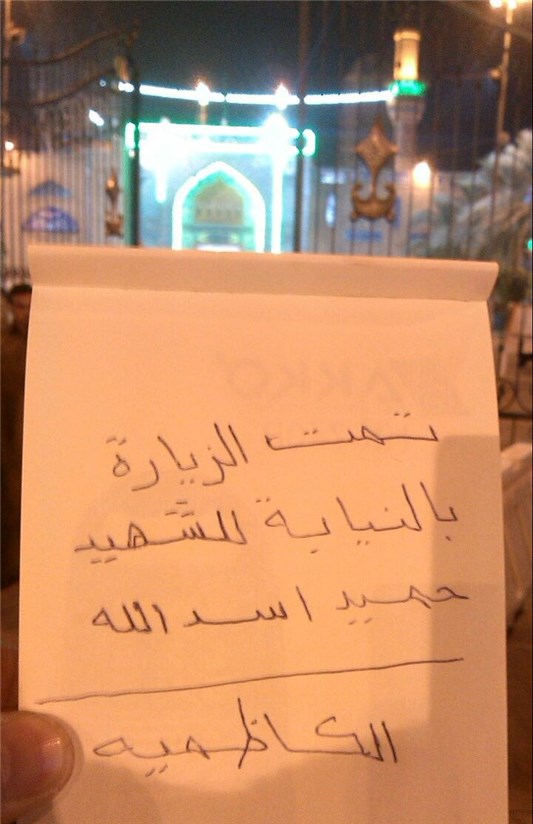 تمت الزيارة
بالنيابة للشهيد
حميد اسد الله
الكاظميه